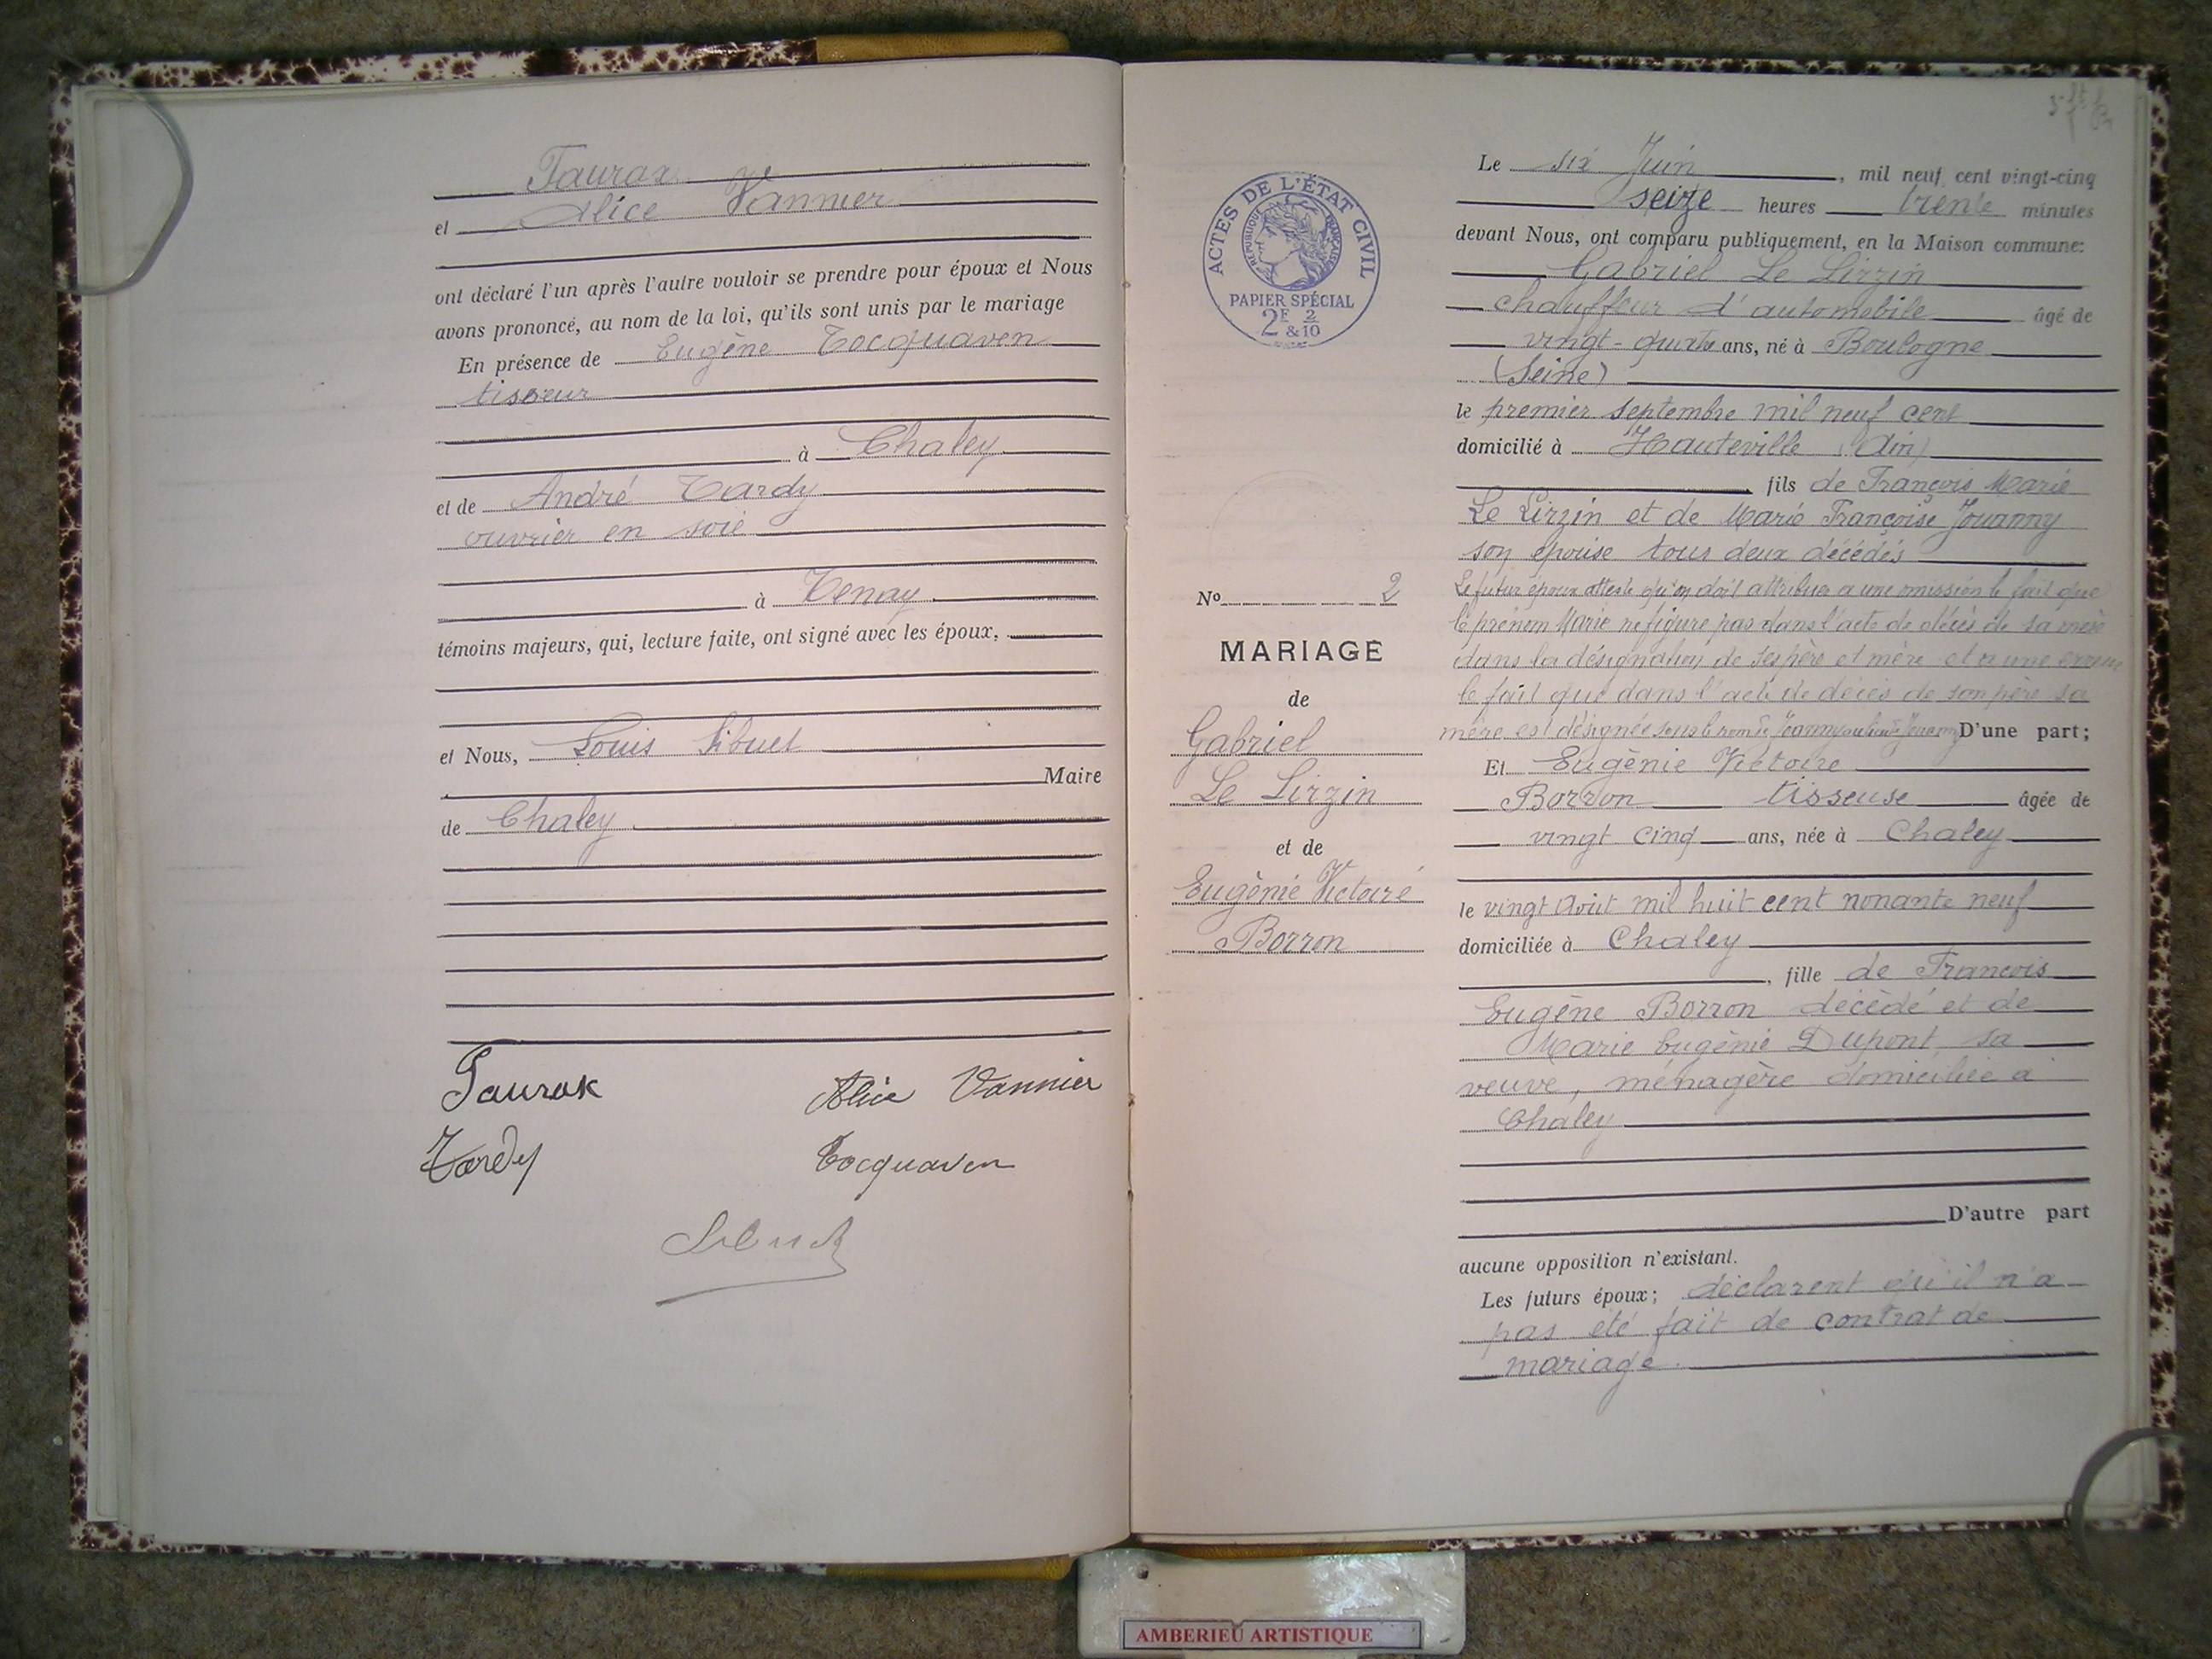 Taurax
et Alice Vannier
ont déclaré l'un après l'autre vouloir se prendre pour époux et Nous
avons prononcé, au nom de la loi, qu'ils sont unis par le mariage
En présence de Eugène Tocquaven
tisseur
à Chaley
et de André Tardy
ouvrier en soie
à Tenay
témoins majeurs, qui, lecture faite, ont signé avec les époux,
et Nous, Louis Sibuet
Maire
de Chaley
Alice Vannier
Tardy Tocquaven
ACTES DE L'ÉTAT CIVIL
RÉPUBLIQUE FRANÇAISE
PAPIER SPÉCIAL
2F 2
& 10
No 2
MARIAGE
de
Gabriel
Le Lirzin
et de
Eugènie Victoire
Borron
Le six Juin, mil neuf cent vingt-cinq
seize heures trente minutes
devant Nous, ont comparu publiquement, en la Maison commune:
Gabriel Le Lirzin
chauffeur d'automobile âgé de
vingt-quatre ans, né à Boulogne
(Seine)
le premier septembre mil neuf cent
domicilié à Hauteville (Ain)
fils de François Marie
Le Lirzin et de Marie Françoise Jouanny
son épouse tous deux décédés
Le futur époux atteste qu'on doit attribuer a une omission le fait que
le prénom Marie ne figure pas dans l'acte de décès de sa mère
dans la désignation de ses père et mère et a une erreur
le fait que dans l'acte de décès de son père sa
mère est désignée sous le nom de Joanny au lieu de Jouanny D'une part;
Et Eugènie Victoire
Borron tisseuse âgée de
vingt cinq ans, née à Chaley
le vingt Août mil huit cent nonante neuf
domiciliée à Chaley
, fille de François
Eugène Borron décédé et de
Marie Eugènie Dupont, sa
veuve, ménagère domiciliée à
Chaley
D'autre part
aucune opposition n'existant.
Les futurs époux; déclarent qu'il n'a
pas été fait de contrat de
mariage.
AMBERIEU ARTISTIQUE